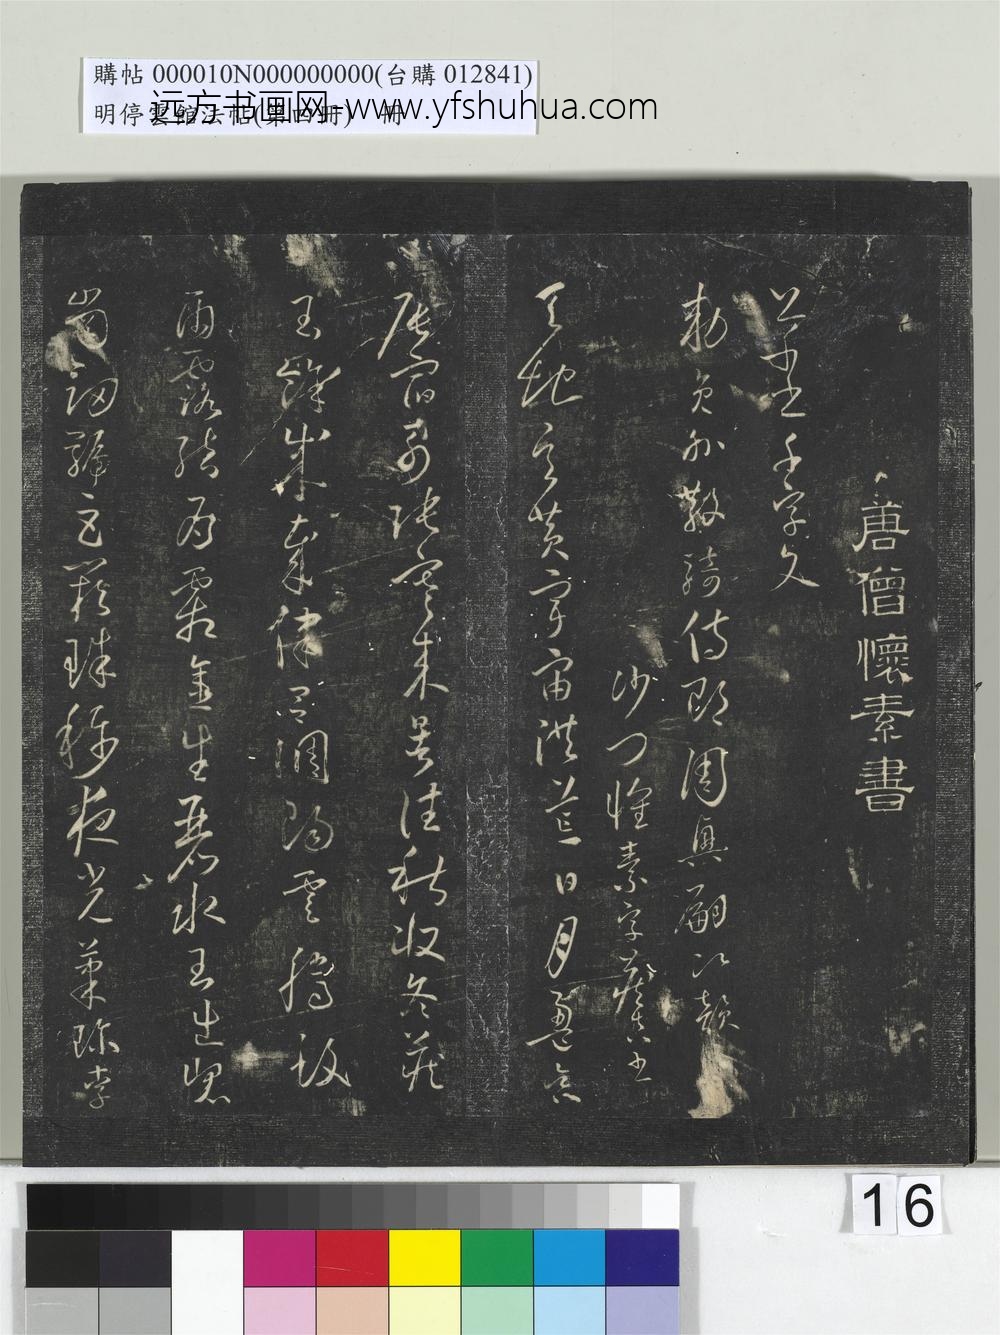 購帖 000010N000000000(台購 012841)
明停雲館法帖(第四冊) 冊
远方书画网-www.yfshuhua.com
唐僧懷素書
千字文
勅員外散騎侍郎周興嗣次韻
沙門懷素字藏真書
天地玄黃宇宙洪荒日月盈昃
辰宿列張寒來暑往秋收冬藏
閏餘成歲律呂調陽雲騰致
雨露結為霜金生麗水玉出崑
崗劍號巨闕珠稱夜光菓珍李
16